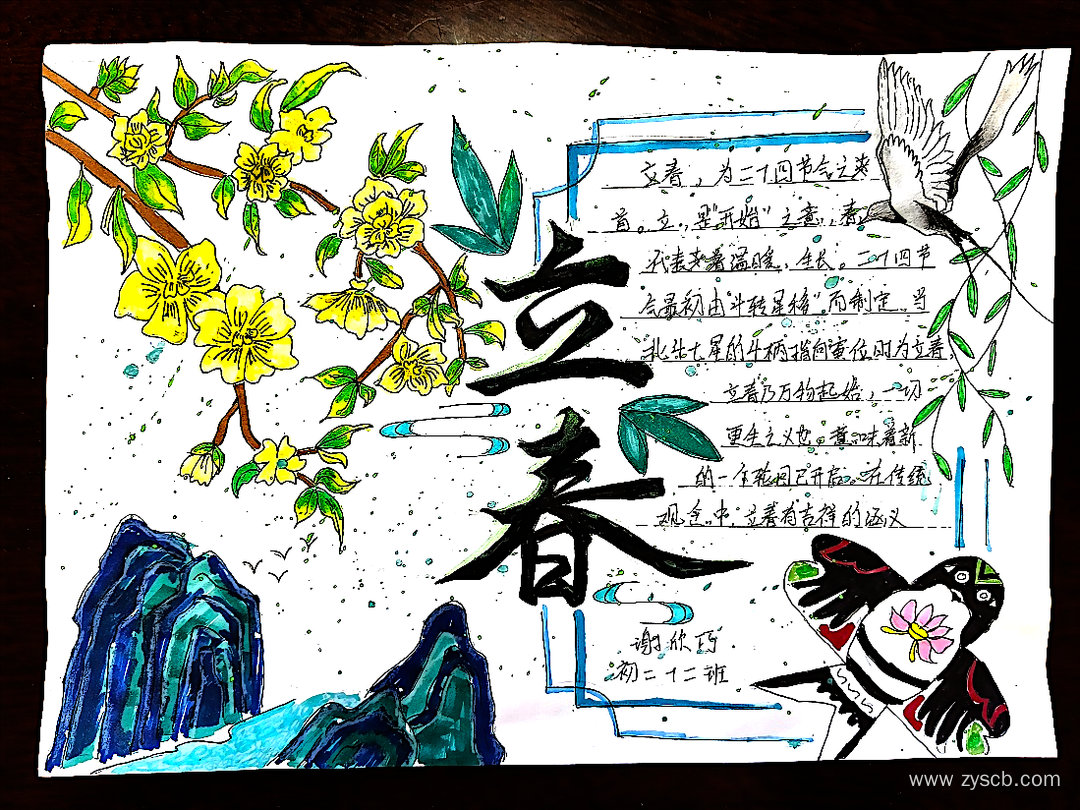 立春
立春，为二十四节气之来
首。立，是"开始"之意，春
代表着温暖、生长。二十四节
会最初由"斗转星移"而制定，当
北斗七星的斗柄指向寅位时为立春，
立春乃万物起始，一切
更生之义也。意味着新
的一个轮回已开启。在传统
观念中，立春有吉祥的涵义
谢欣巧
初二十二班
www.zyscb.com